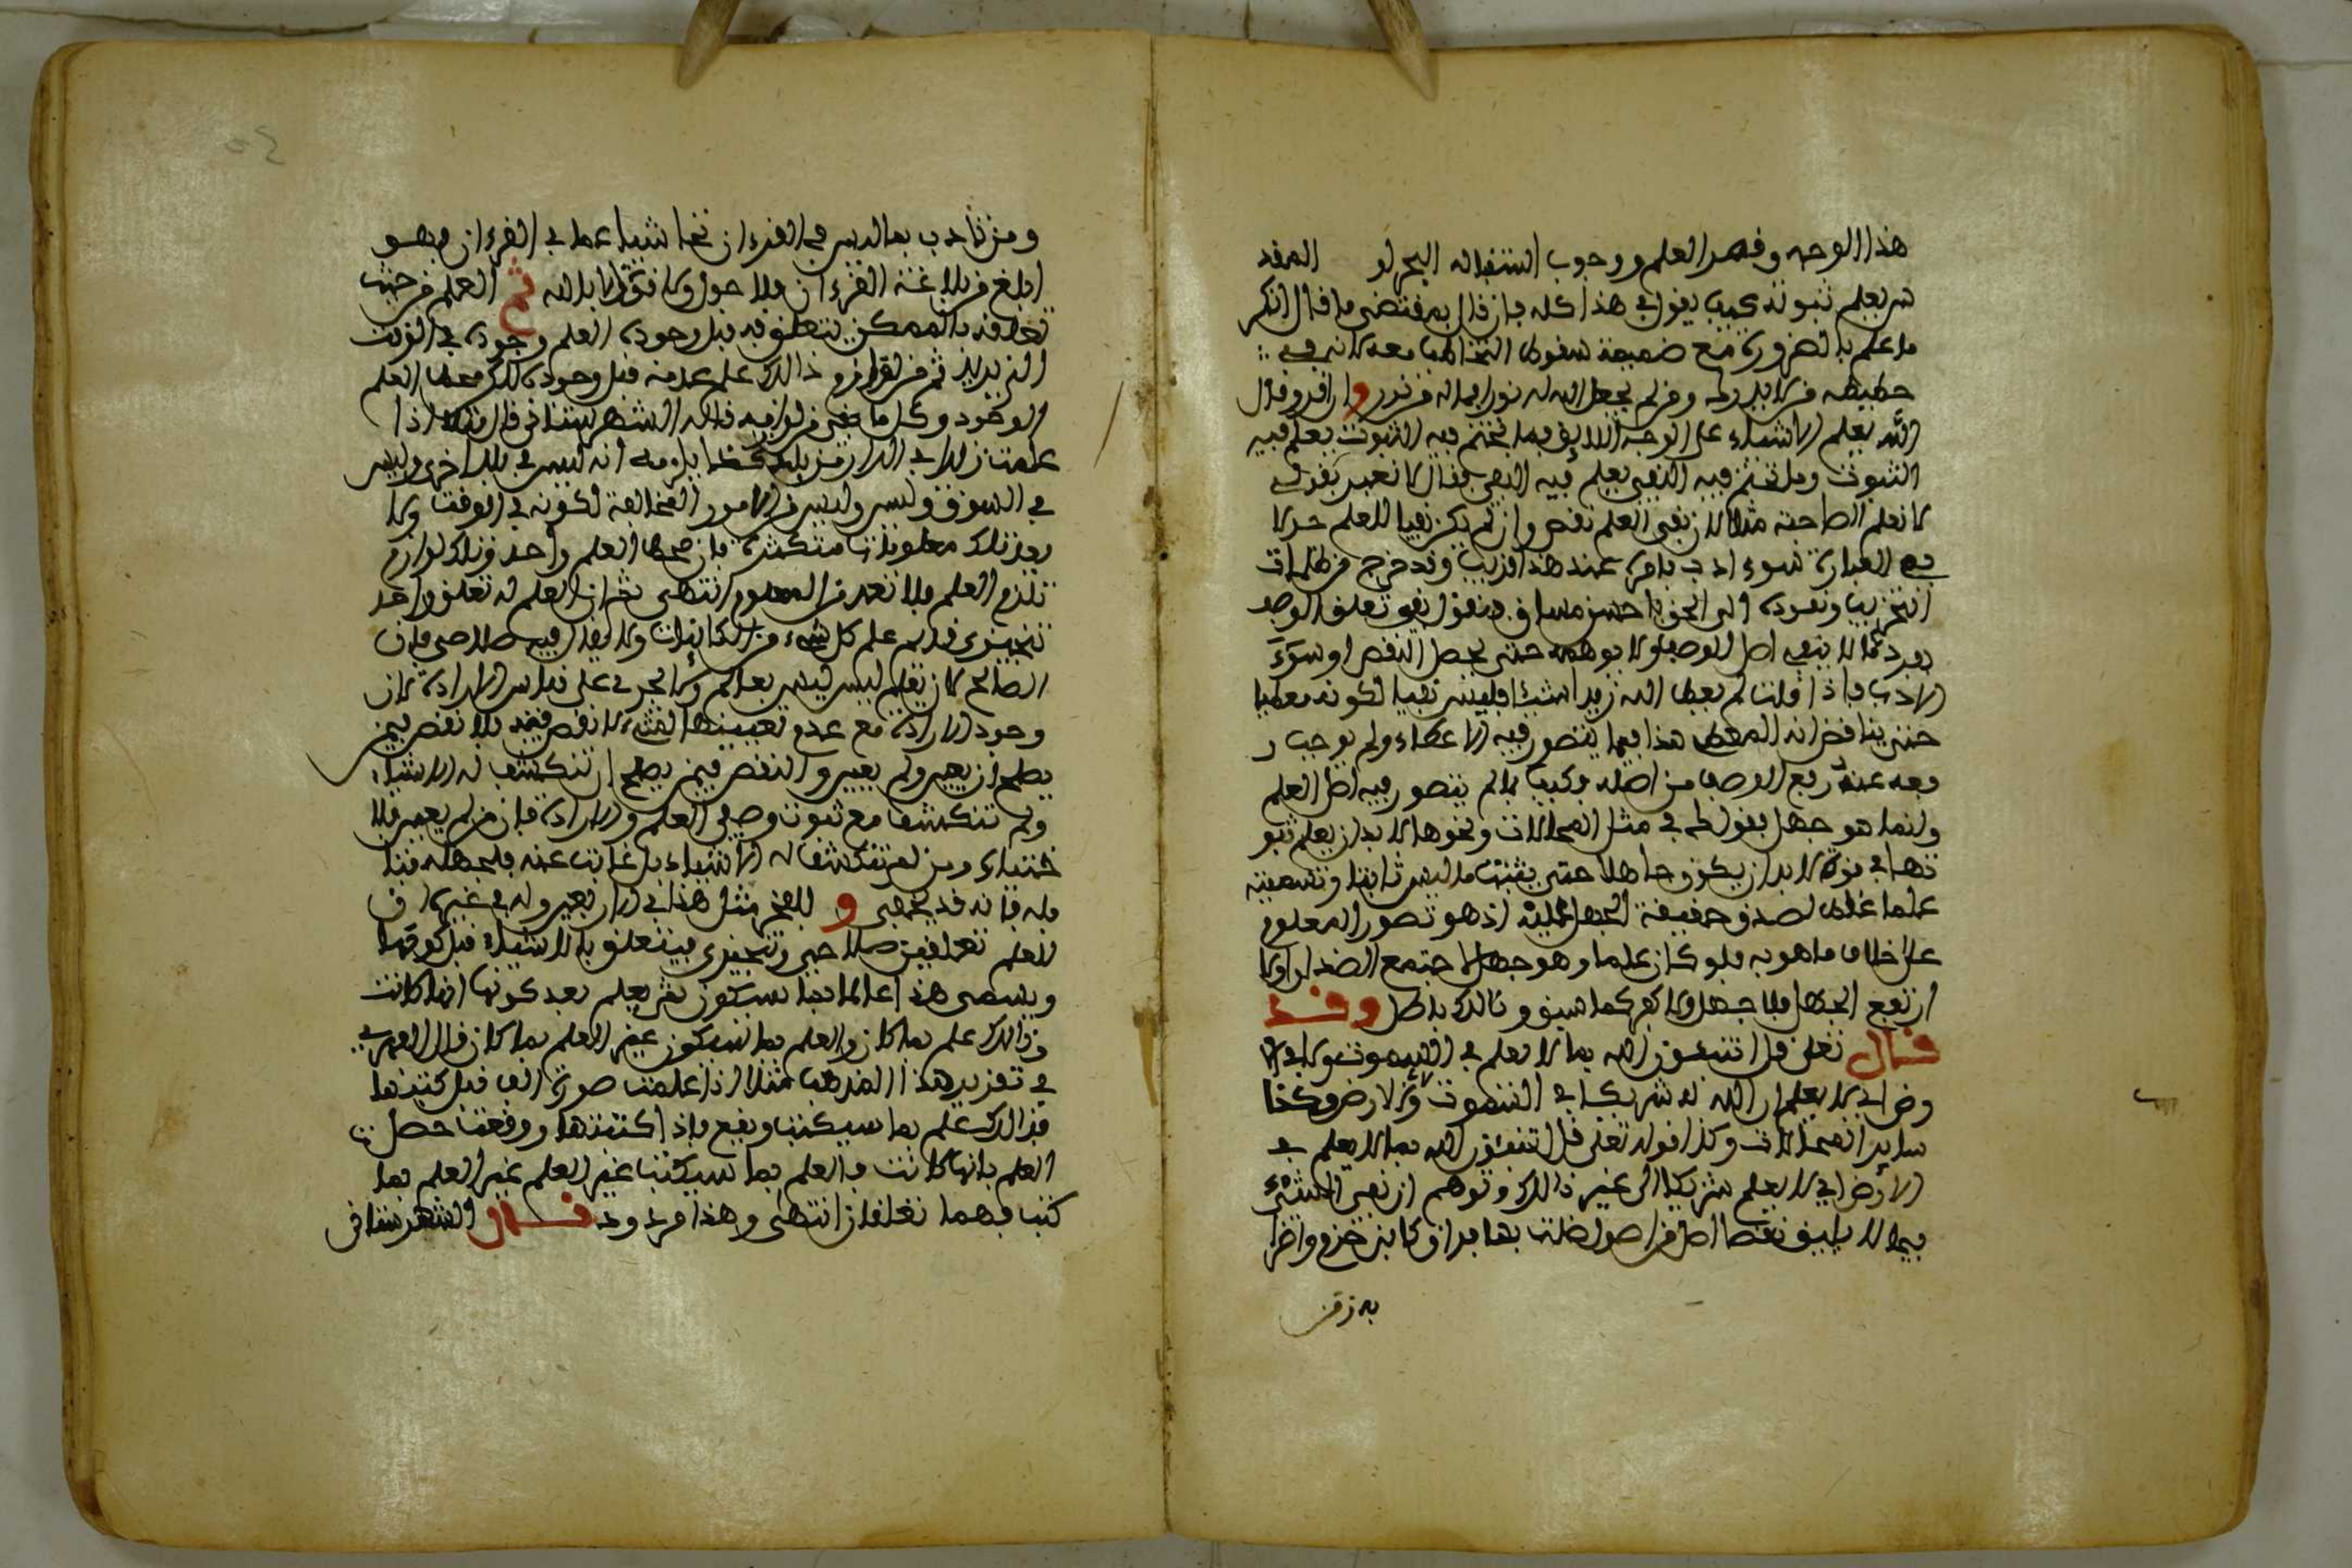 هذا الوجه وقصر العلم ووجوب استقباله
ثم يعلم ثبوته كيف يقول في هذا كله فإن قال بمقتضى ما قال انكر
ما علم بالضرورة مع
ومن لم يجعل الله له نورا فما له من نور وان اقر وقال
الله يعلم الاشياء على الوجه اللايق فما تحتم فيه الثبوت يعلم فيه
الثبوت وما تحتم فيه النفي يعلم فيه النفي فقال لا نعبر بقولي
لا نعلم الصاحبة مثلا لان نفي العلم نقص وان لم يكن نفيا للعلم
العبارة سوء ادب فامره عند هذا قريب وقد خرج من ظلمات
الى الحق نفي تعلق الوصف
لا ينفي اصل الوصف ولا يوهمه حتى يحصل النقص او سوء
الادب فاذا قلت لم يعط الله زيدا شيئا فليس نفيا لكونه معطيا
حتى يناقض انه المعطي هذا فيما يتصور فيه الاعطاء ولم يوجب ر
فعه عنه رفع الوصف من اصله فكيف بما لم يتصور فيه اصل العلم
وانما هو جهل بقوله في مثل المحالات ونحوها لا بد ان يعلم ثبو
تها في قوة لا بد ان يكون جاهلا حتى يثبت ما ليس ثابتا وتسميته
علما غلط لصدق حقيقة الجهل عليه اذ هو تصور المعلوم
على خلاف ما هو به فلو كان علما وهو جهل لاجتمع الضدان او لا
ارتفع الجهل فلا جهل ولا كفر كما سبق وذالك باطل وقد
قال تعلى قل اتنبئون الله بما لا يعلم في السموت ولا في الا
رض اي لا يعلم ان الله له شريكا في السموت ولا في الارض وكذا
ساير المحالات وكذا قوله تعلى قل اتنبئون الله بما لا يعلم في
الارض اي لا يعلم شريكا الى غير ذالك وتوهم ان نفي الشيء
فيما لا يليق نقصا اصل من اصول ضلت بها فراق كابن حزم واضرا
به ومن
ومن تأدب بما ليس في القرءان نحا شيئا عما في القرءان وهو
ابلغ من بلاغة القرءان فلا حول ولا قوة الا بالله ثم العلم من حيث
تعلقه بالممكن يتعلق به قبل وجوده العلم وجوده في الوقت
الذي يريد ثم من لوازم ذالك علم عدمه قبل وجوده لاكن معطى العلم
الوجود وكل ما بقي من لوازمه قاله الشهرستاني قال فانك اذا
علمت زيدا في الدار من بلد كذا يلزمه انه ليس في بلد اخرى وليس
في السوق وليس وليس من الامور المخالفة لكونه في الوقت ولا
يعد ذلك معلومات متكثرة فان معطى العلم واحد وتلك لوازم
تلزم العلم فلا تعد من المعلوم انتهى ثم ان العلم له تعلق واحد
تنجيزي قديم علم كل شيء من الكاينات ولا يقدر فيه صلاحي فان
الصالح لان يعلم ليس بعالم ولا يجري على قياس الارادة لان
وجود الارادة مع عدم تعيينها الشيء لا نقص فيه بلا نقص فيمن
يصلح ان يعين ولم يعين والنقص فيمن يصلح ان تنكشف له الاشياء
ولم تنكشف مع ثبوت وصفي العلم والارادة فان من لم يعين فلا
ختياره ومن لم تنكشف له الاشياء بل غابت عنه فلجهله بتا
مله فانه قد يخفى و للفخر مثل هذا في الاربعين وله في غيرها ان
للعلم تعلقين صلاحي وتنجيزي فيتعلق بالاشياء قبل كونها
ويسمى هذا عالما بما سيكون ثم يعلم بعد كونها انها كانت
وذالك علم بما كان والعلم بما سيكون غير العلم بما كان قال الفهري
في تقرير هذا المذهب مثلا اذا علمت صورة الف قبل كتبها
فذالك علم بما سيكتب ويقع فاذا كتبتها ووقعت حصل
العلم بانها كانت فالعلم بما سيكتب غير العلم غير العلم بما
كتب فهما تعلقان انتهى وهذا مردود قال الشهرستاني